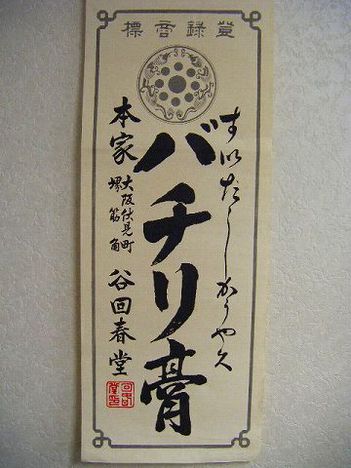 登録商標
すいだしかうやく
バチリ膏
本家
大阪伏見町
堺筋角
谷回春堂